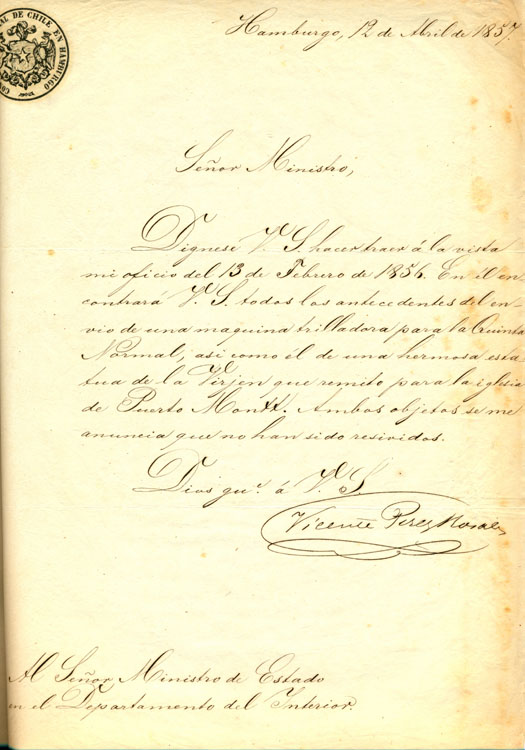 AL DE CHILE EN HAMBURGO
Hamburgo, 12 de Abril de 1857.
Señor Ministro,
Dignese V. S. hacer traer á la vista
mi oficio del 13 de Febrero de 1856. En él en-
contrará V. S. todos los antecedentes del en-
vio de una maquina trilladora para la Quinta
Normal, asi como él de una hermosa esta-
tua de la Virjen que remito para la iglesia
de Puerto Montt. Ambos objetos se me
anuncia que no han sido resividos.
Dios gue. á V. S.
Vicente Perez Rosales
Al Señor Ministro de Estado
en el Departamento del Interior.